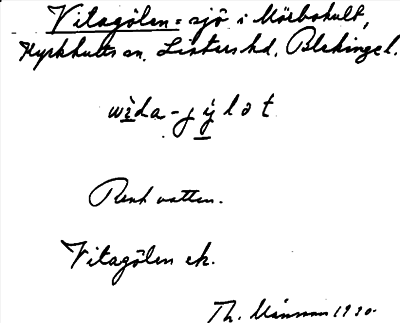 Vitagölen = sjö i Mörbohult,
Kyrkhults sn, Listers hd, Blekinge l.
wìda-jÿlət
Rent vatten.
Vitagölen ek.
Th. 1930.